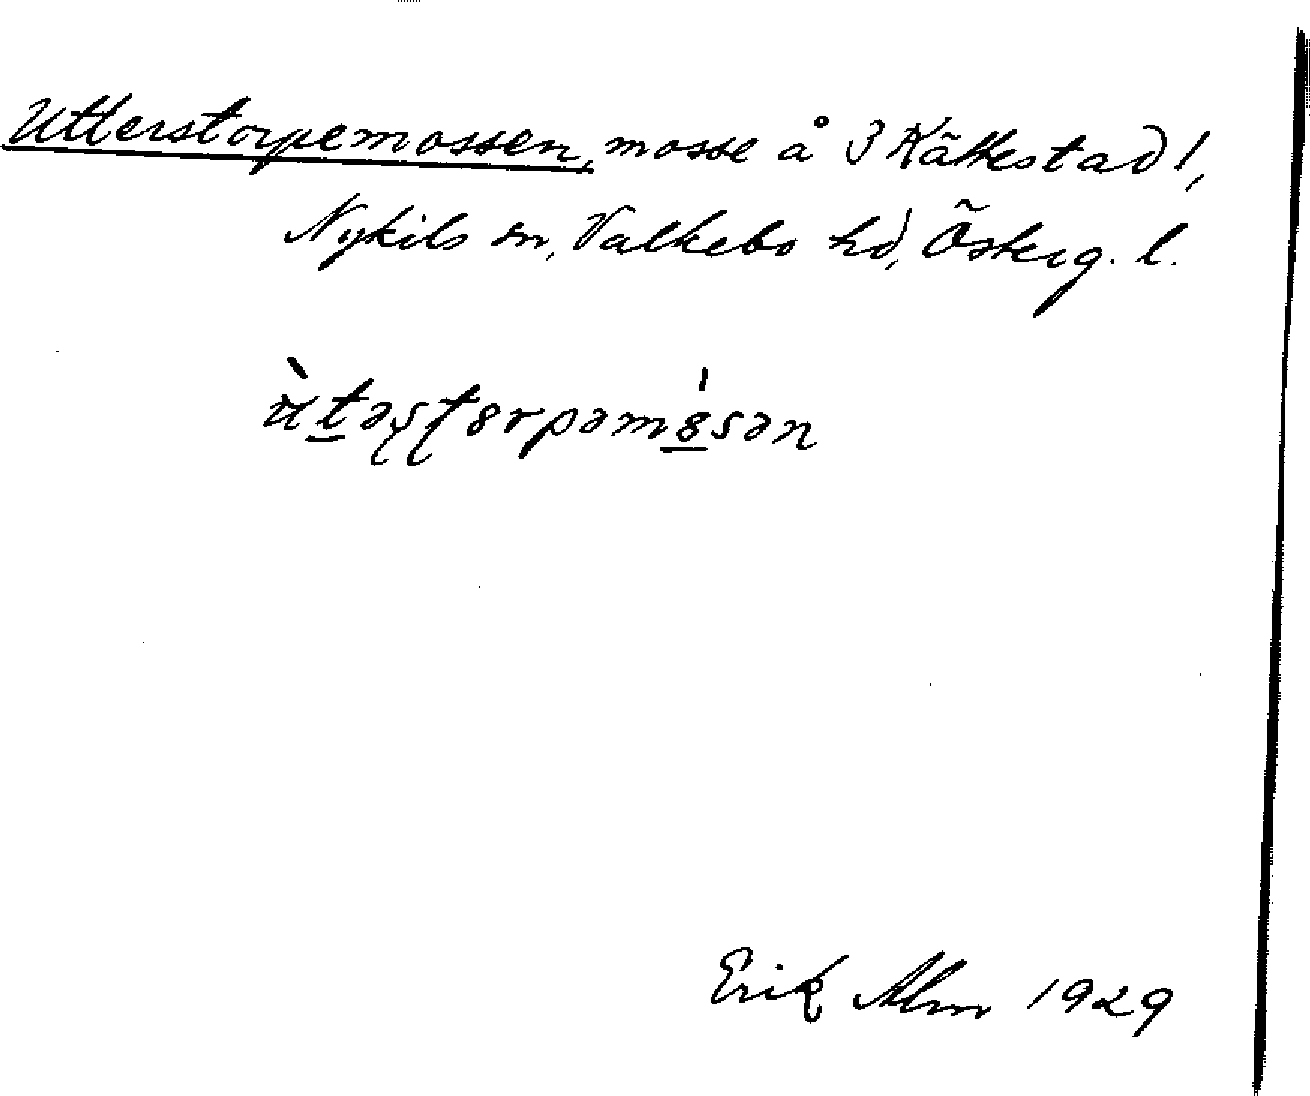 Utterstorpemossen, mosse å 3 Kättestad 1,
Nykils sn, Valkebo hd, Österg. l.
ù̈t̲əʂʈɵrpəmɵ̲́sən
Erik Alm 1929